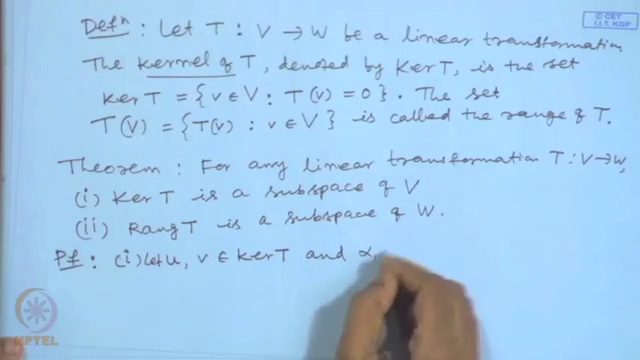 Defⁿ : Let T : V → W be a linear transformation
The kernel of T, denoted by Ker T, is the set
Ker T = {v ∈ V : T(v) = 0}. The set
T(V) = {T(v) : v ∈ V} is called the range of T.
Theorem : For any linear transformation T : V → W,
(i) Ker T is a subspace of V
(ii) Rang T is a subspace of W.
Pf : (i) Let u, v ∈ Ker T and α,
© CET
I.I.T. KGP
NPTEL